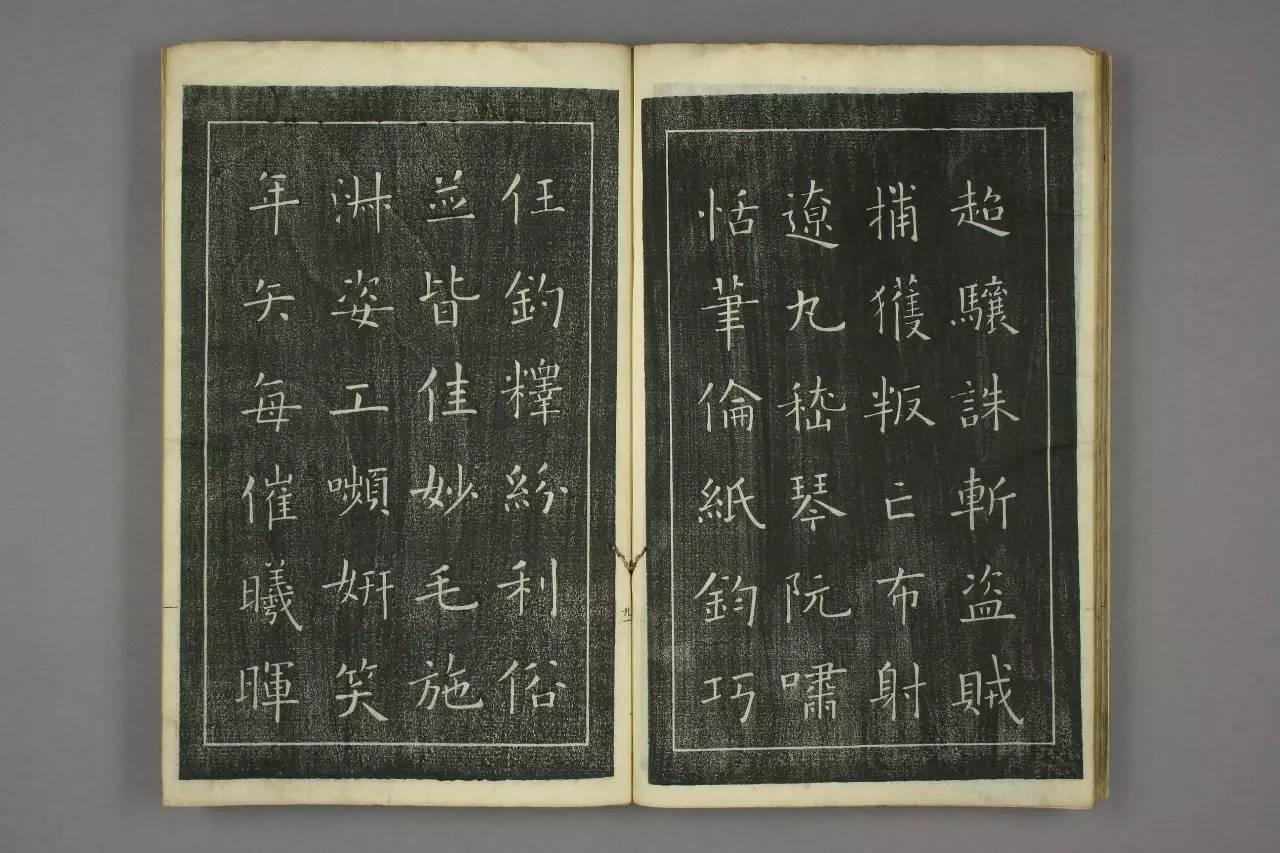 超驤誅斬盗賊
捕獲叛亡布射
遼丸嵇琴阮嘯
恬筆倫紙鈞巧
任釣釋紛利俗
並皆佳妙毛施
淋姿工嚬妍笑
年矢每催曦暉
九